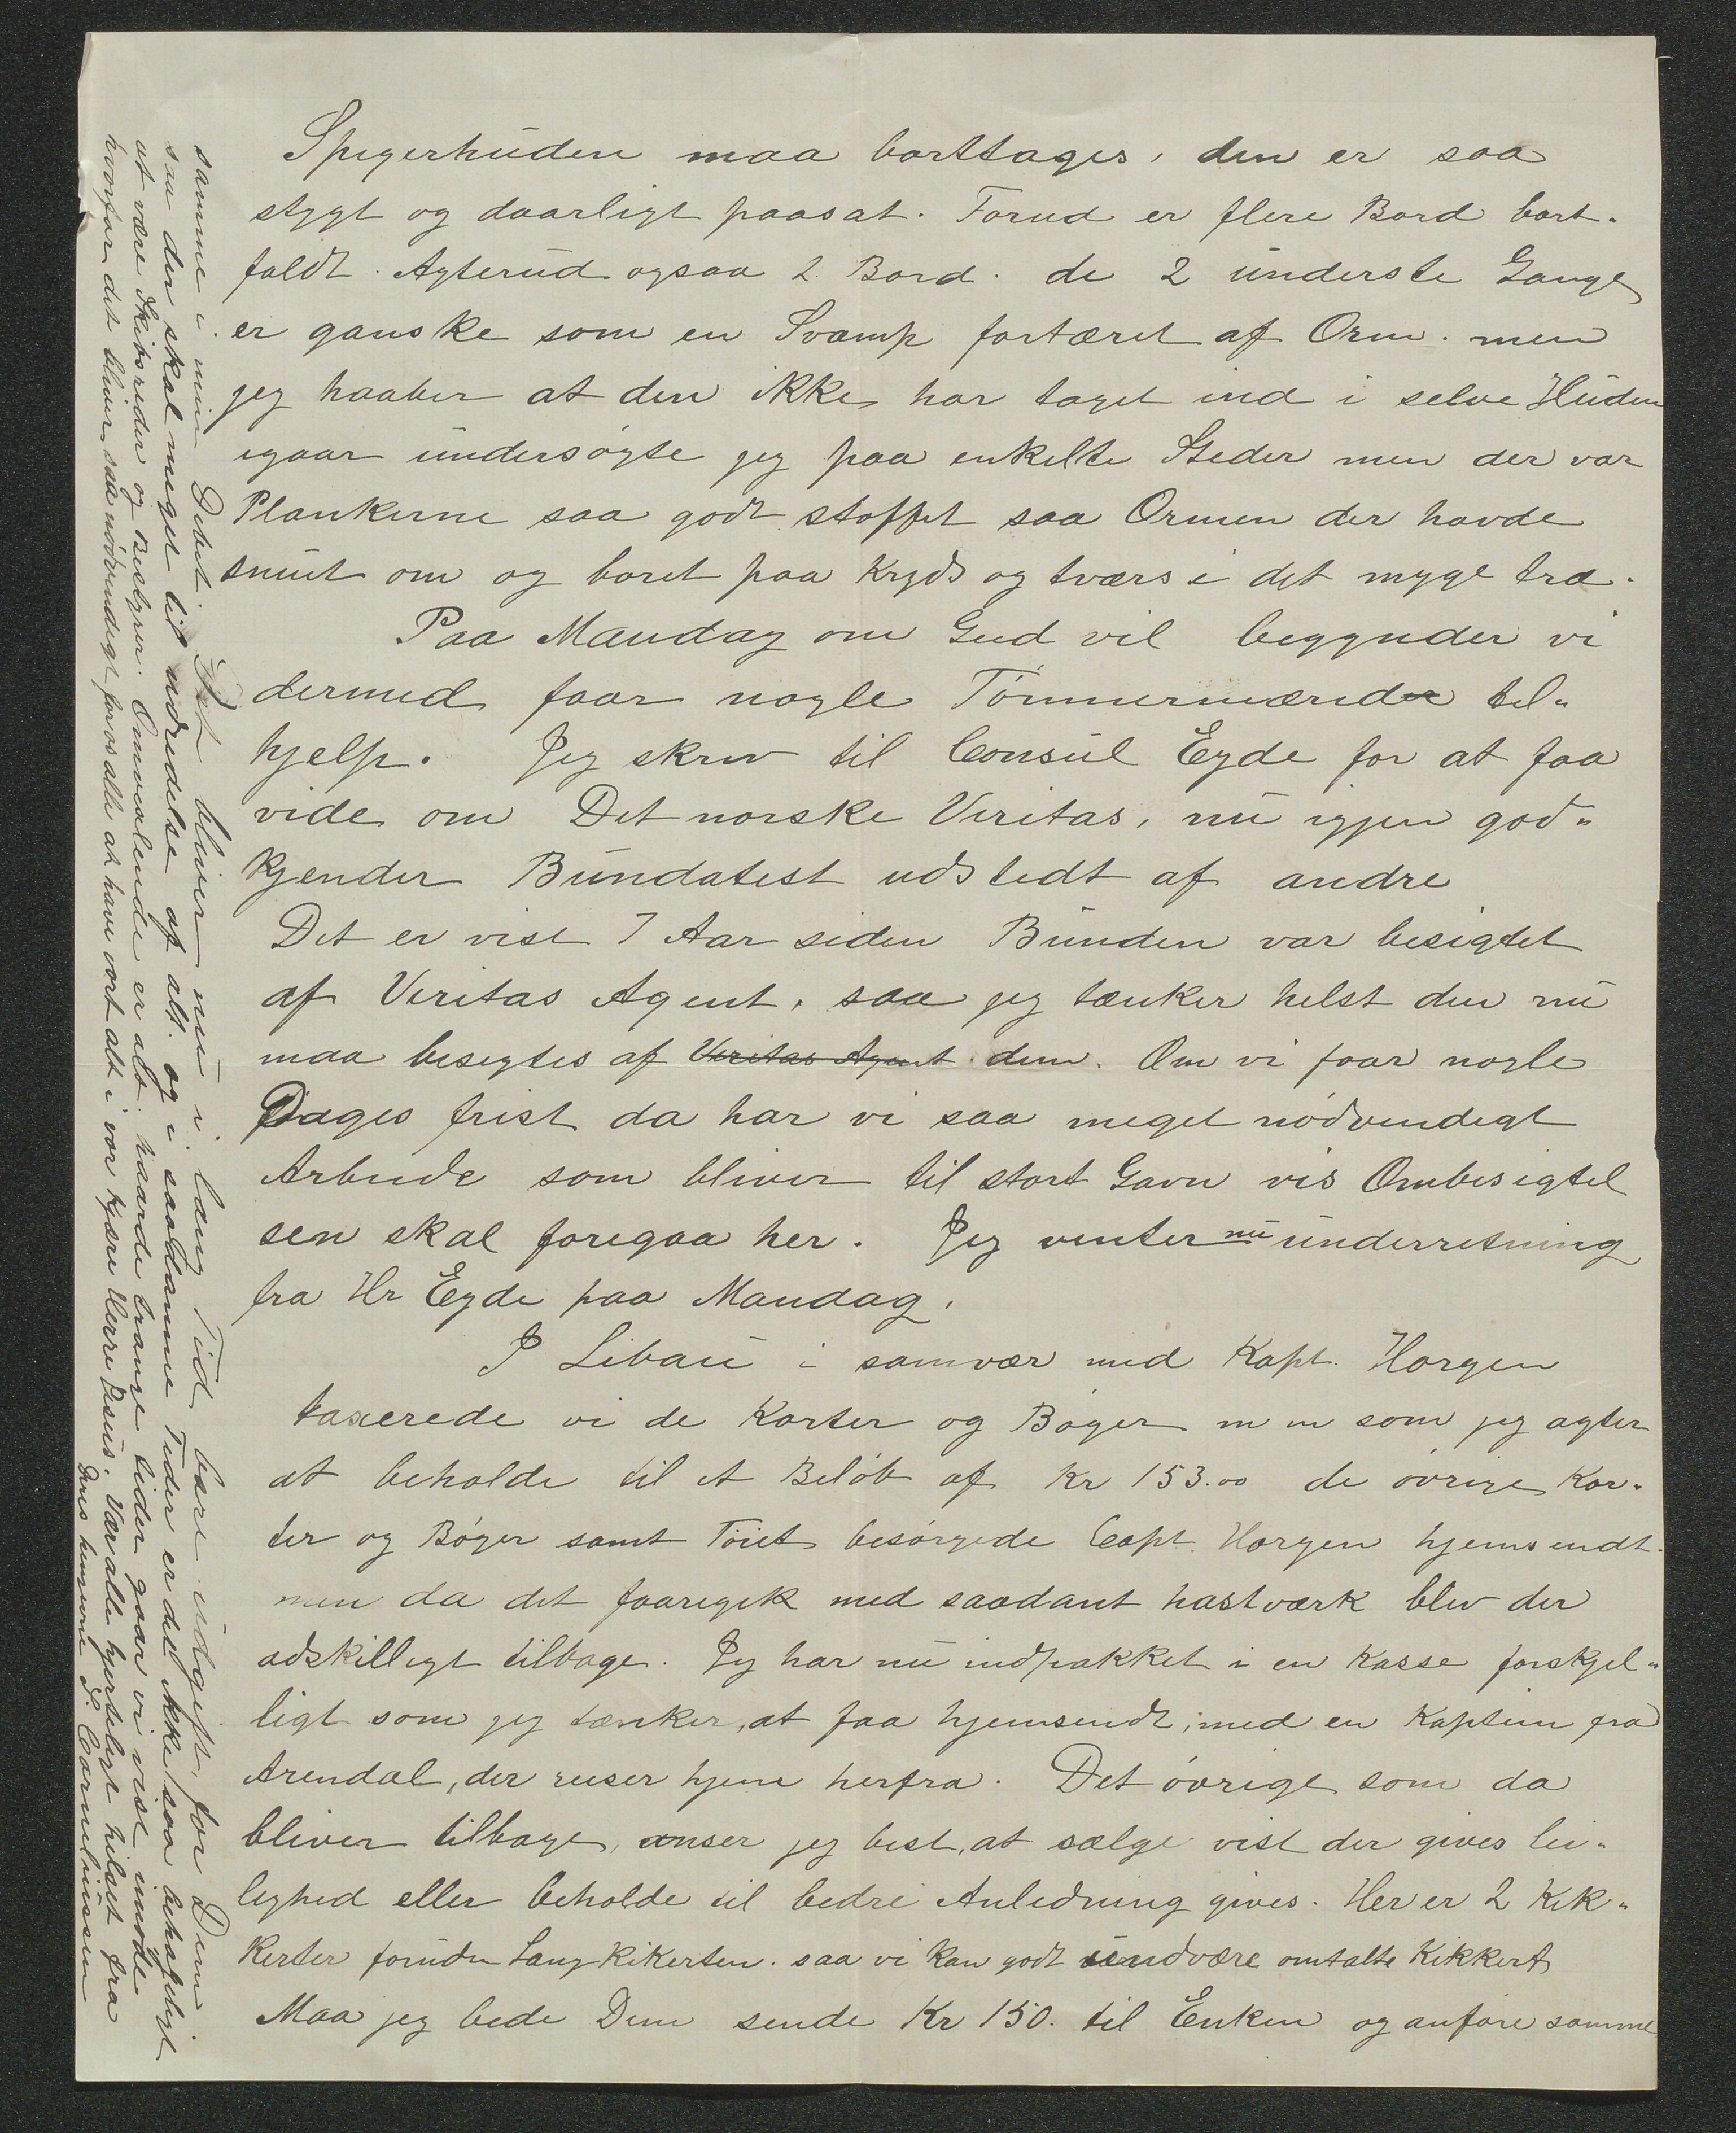 Spigerhuden maa borttages, den er saa
stygt og daarligt paasat. Forud er flere Bord bort-
faldt. Agterud ogsaa 2 Bord. de 2 underste Gange
er ganske som en Svamp fortæret af Orm. men
jeg haaber at den ikke har taget ind i selve Huden
igaar undersøgte jeg paa enkelte Steder men der var
Plankerne saa godt stoppet saa Ormen der havde
snuet om og boret paa kryds og tværs i det myge træ.
Paa Mandag om Gud vil begynder vi
dermed faar nogle Tømmermænd til-
hjelp. Jeg skrev til Consul Eyde for at faa
vide om Det norske Veritas, nu igjen god-
kjender Bundatest udstedt af andre
Det er vist 7 Aar siden Bunden var besigtet
af Veritas Agent, saa jeg tænker helst den nu
maa besigtes af Veritas Agent dem. Om vi faar nogle
Dages frist da har vi saa meget nødvendigt
Arbeide som bliver til stort Gavn vis Ombesigtel
sen skal foregaa her. Jeg venter nu underretning
fra Hr Eyde paa Mandag.
I Libau i samvær med Kapt. Horgen
taxerede vi de Karter og Bøger m m som jeg agter
at beholde til et Beløb af Kr 153.00 de øvrige Kar-
ter og Bøger samt Tøiet besørgede Capt. Horgen hjemsendt.
men da det foaregik med saadant hastværk blev der
adskilligt tilbage. Jeg har nu indpakket i en Kasse forskjel-
ligt som jeg tænker, at faa hjemsendt, med en Kaptein fra
Arendal, der reiser hjem herfra. Det øvrige som da
bliver tilbage, anser jeg best, at sælge vist der gives lei-
lighed eller beholde til bedre Anledning gives. Her er 2 Kik-
kerter foruden Lang Kikerten. saa vi kan godt undvære omtalte Kikkert
Maa jeg bede Dem sende Kr 150. til Enken og anføre samme
samme i min Debet. Det bliver nu i lang Tid bare Udgift, for Dem
saa der skal meget til udredelse af alt. og i saadanne Tider er det ikke saa behageligt
at være Skibsreder og Bestyrer. Omvexlende er alt. haarde trange tider gaar vi vist imøde
hvorfor det bliver saa nødvendigt for os alle at have vort alt i vor kjære Herre Jesus. Vær alle hjerteligst hilset fra
Deres hengivne S. Corneliussen